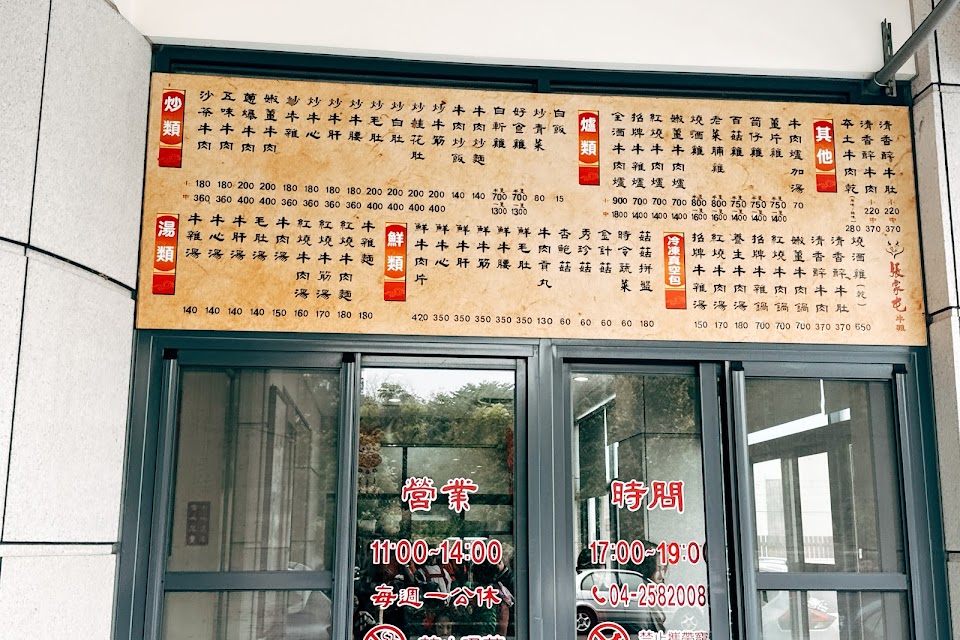 炒類
沙茶牛肉
瓦味牛肉
蔥爆牛肉
嫩薑牛肉
炒牛雜
炒牛心
炒牛肝
炒牛腰
炒毛肚
炒白肚
炒牛筋
牛肉炒飯
牛肉炒麵
白斬雞
好食雞
炒青菜
白飯
小 180 180 200 200 180 180 180 180 200 200 200 200 140 140 700 700 80 15
中 360 360 400 400 360 360 360 360 400 400 400 400 1300 1300
爐類
全酒牛肉爐
招牌牛肉爐
紅燒牛肉爐
嫩薑牛肉爐
燒酒雞
老菜脯雞
百菇雞
筒仔雞
薑片雞
牛肉爐加湯
小 900 700 700 700 800 800 750 750 750 70
中 1800 1400 1400 1400 1600 1600 1400 1400 1400
其他
夲土牛肉乾
清香醉牛肉
清香醉牛肚
小 220 小 220
280 中 370 中 370
湯類
牛雜湯
牛心湯
牛肝湯
毛肚湯
牛肉湯
紅燒牛肉湯
紅燒牛筋湯
紅燒牛肉麵
牛雜麵
140 140 140 140 140 160 170 180 180
鮮類
鮮牛肉片
鮮牛心
鮮牛肝
鮮牛筋
鮮毛肚
鮮牛腰
牛肉貢丸
杏鮑菇
秀珍菇
金針菇
時令蔬菜
菇菇拼盤
420 350 350 350 350 350 130 60 60 60 60 180
冷凍真空包
招牌牛雜湯
紅燒牛肉湯
養生牛肉湯
招牌牛雜鍋
紅燒牛肉鍋
嫩薑牛肉鍋
清香醉牛肉
清香醉牛肚
燒酒雞(乾)
150 170 180 700 700 700 370 370 650
營業
時間
11:00~14:00
17:00~19:0
每週一公休
04-2582008
禁止攜帶寵